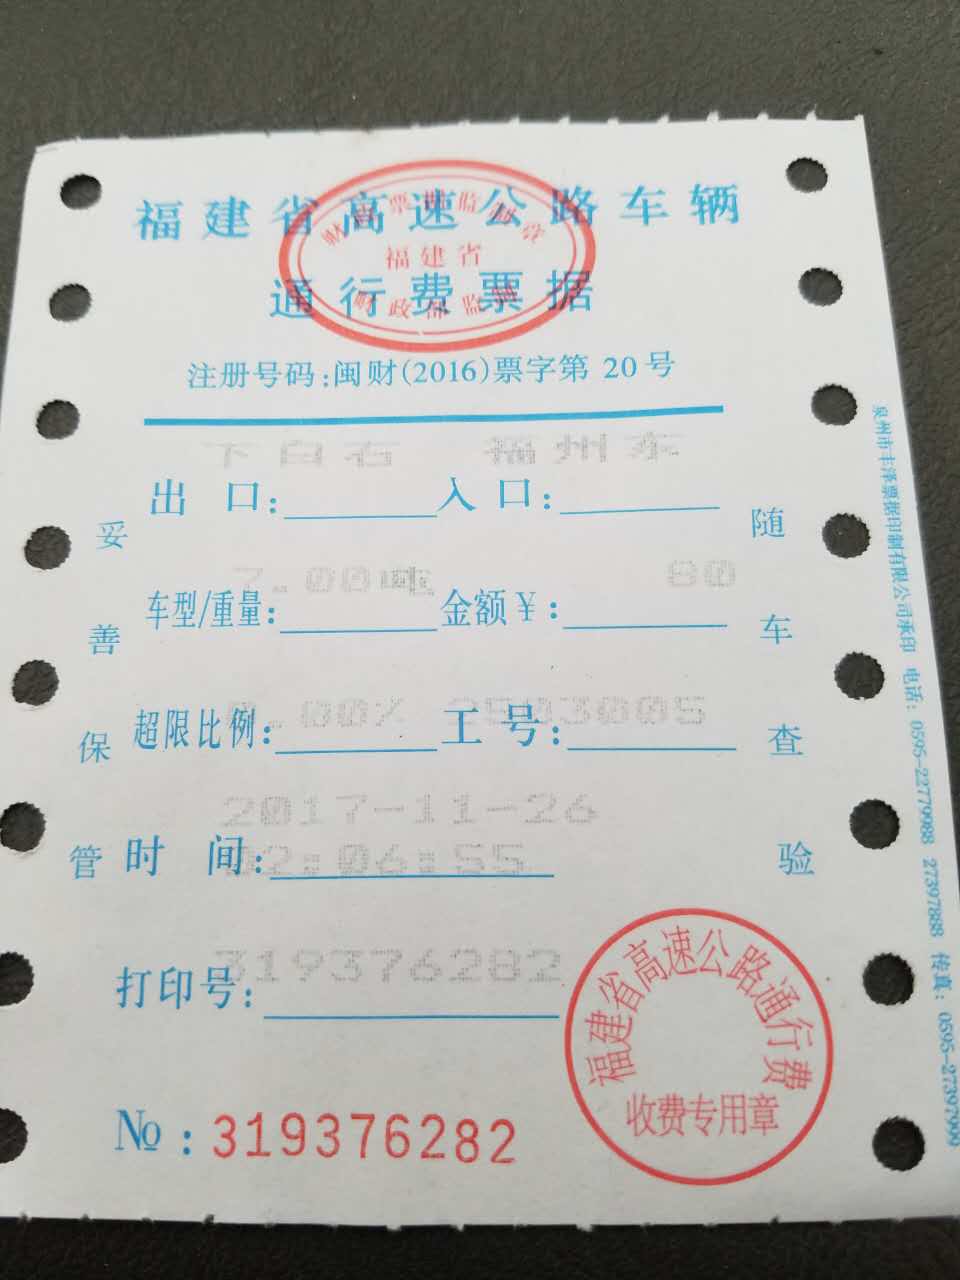 福建省高速公路车辆
通行费票据
福建省
注册号码:闽财(2016)票字第 20 号
下白石 福州东
出 口: 入 口:
7.00吨 80
车型/重量: 金额￥:
0.00% 2503005
超限比例: 工 号:
2017-11-26
时 间: 02:06:55
打印号: 319376282
№:319376282
妥善保管
随车查验
福建省高速公路通行费
收费专用章
泉州市丰泽票据印制有限公司承印 电话: 0595-22779988 27397888 传真: 0595-27397999